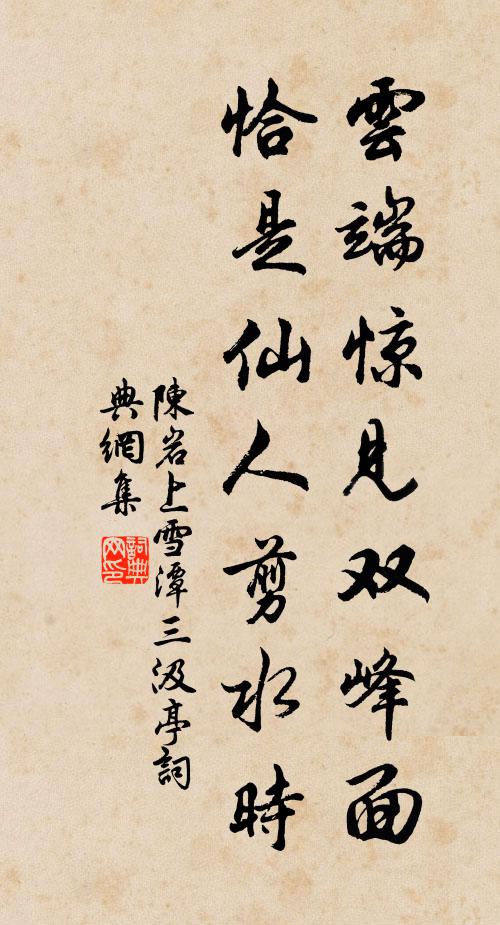 雲端惊見双峰面
恰是仙人剪水時
陳岩上雪潭三汲亭詞
典網集
詞典
网印